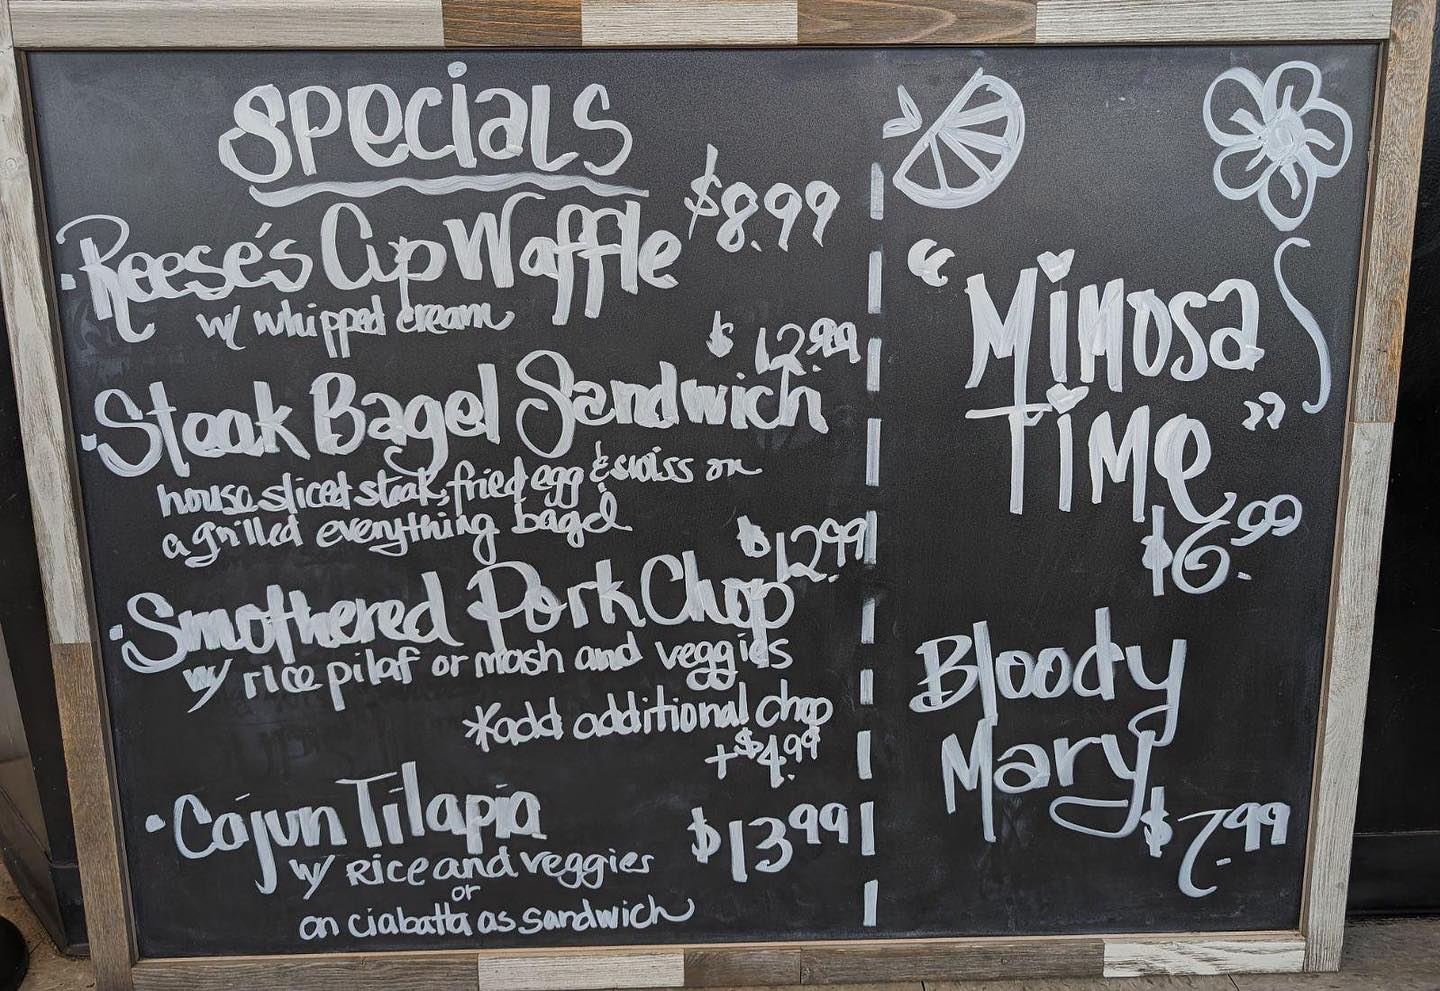 Specials
• Reese's Cup Waffle $8.99
w/ whipped cream
$12.99
• Steak Bagel Sandwich
house sliced steak, fried egg & swiss on
a grilled everything bagel
$12.99
• Smothered Pork Chop
w/ rice pilaf or mash and veggies
*add additional chop
+$4.99
• Cajun Tilapia $13.99
w/ Rice and veggies
or
on ciabatta as sandwich
"Mimosa
Time"
$6.99
Bloody
Mary
$7.99